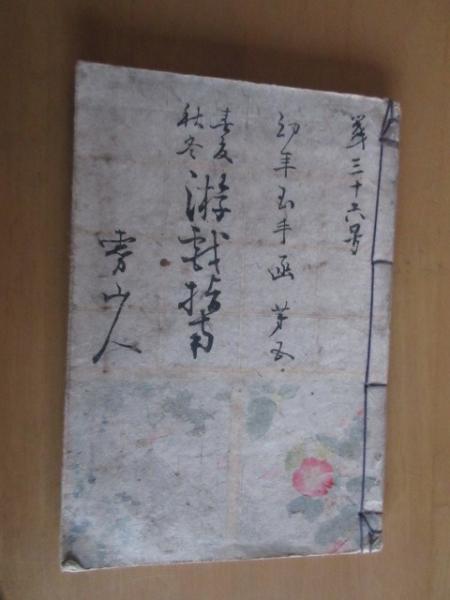 第三十六号
幼年玉手函 第五
春夏
秋冬
游戯指南
山人